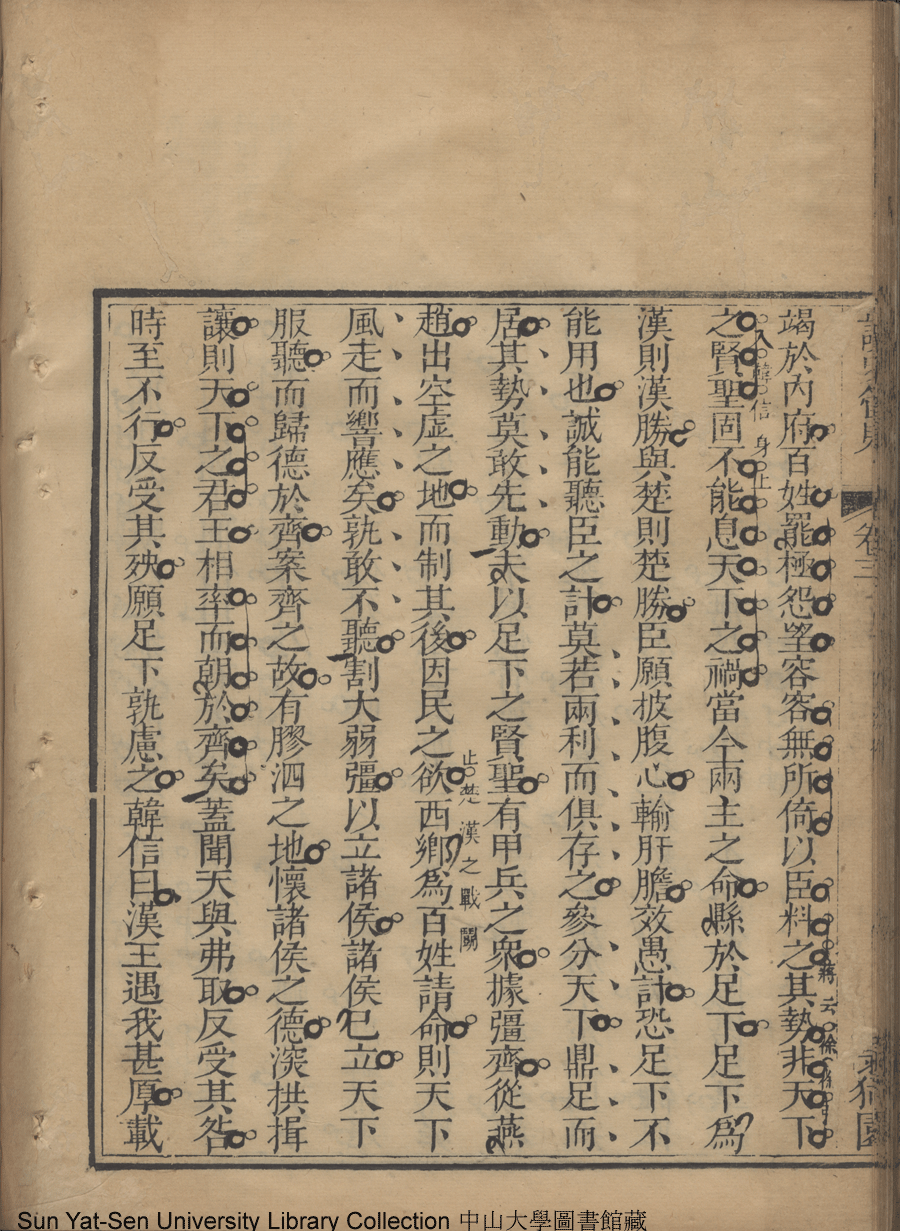 卷三
竭於內府百姓罷極怨望容容無所倚以臣料之其勢非天下
蔣云
之賢聖固不能息天下之禍當今兩主之命縣於足下足下爲
入韓信身上
漢則漢勝與楚則楚勝臣願披腹心輸肝膽效愚計恐足下不
能用也誠能聽臣之計莫若兩利而俱存之參分天下鼎足而
居其勢莫敢先動夫以足下之賢聖有甲兵之衆據彊齊從燕
趙出空虛之地而制其後因民之欲西鄉爲百姓請命則天下
止楚漢之戰鬬
風走而響應矣孰敢不聽割大弱彊以立諸侯諸侯已立天下
服聽而歸德於齊案齊之故有膠泗之地懷諸侯之德深拱揖
讓則天下之君王相率而朝於齊矣蓋聞天與弗取反受其咎
時至不行反受其殃願足下孰慮之韓信曰漢王遇我甚厚載
Sun Yat-Sen University Library Collection 中山大學圖書館藏